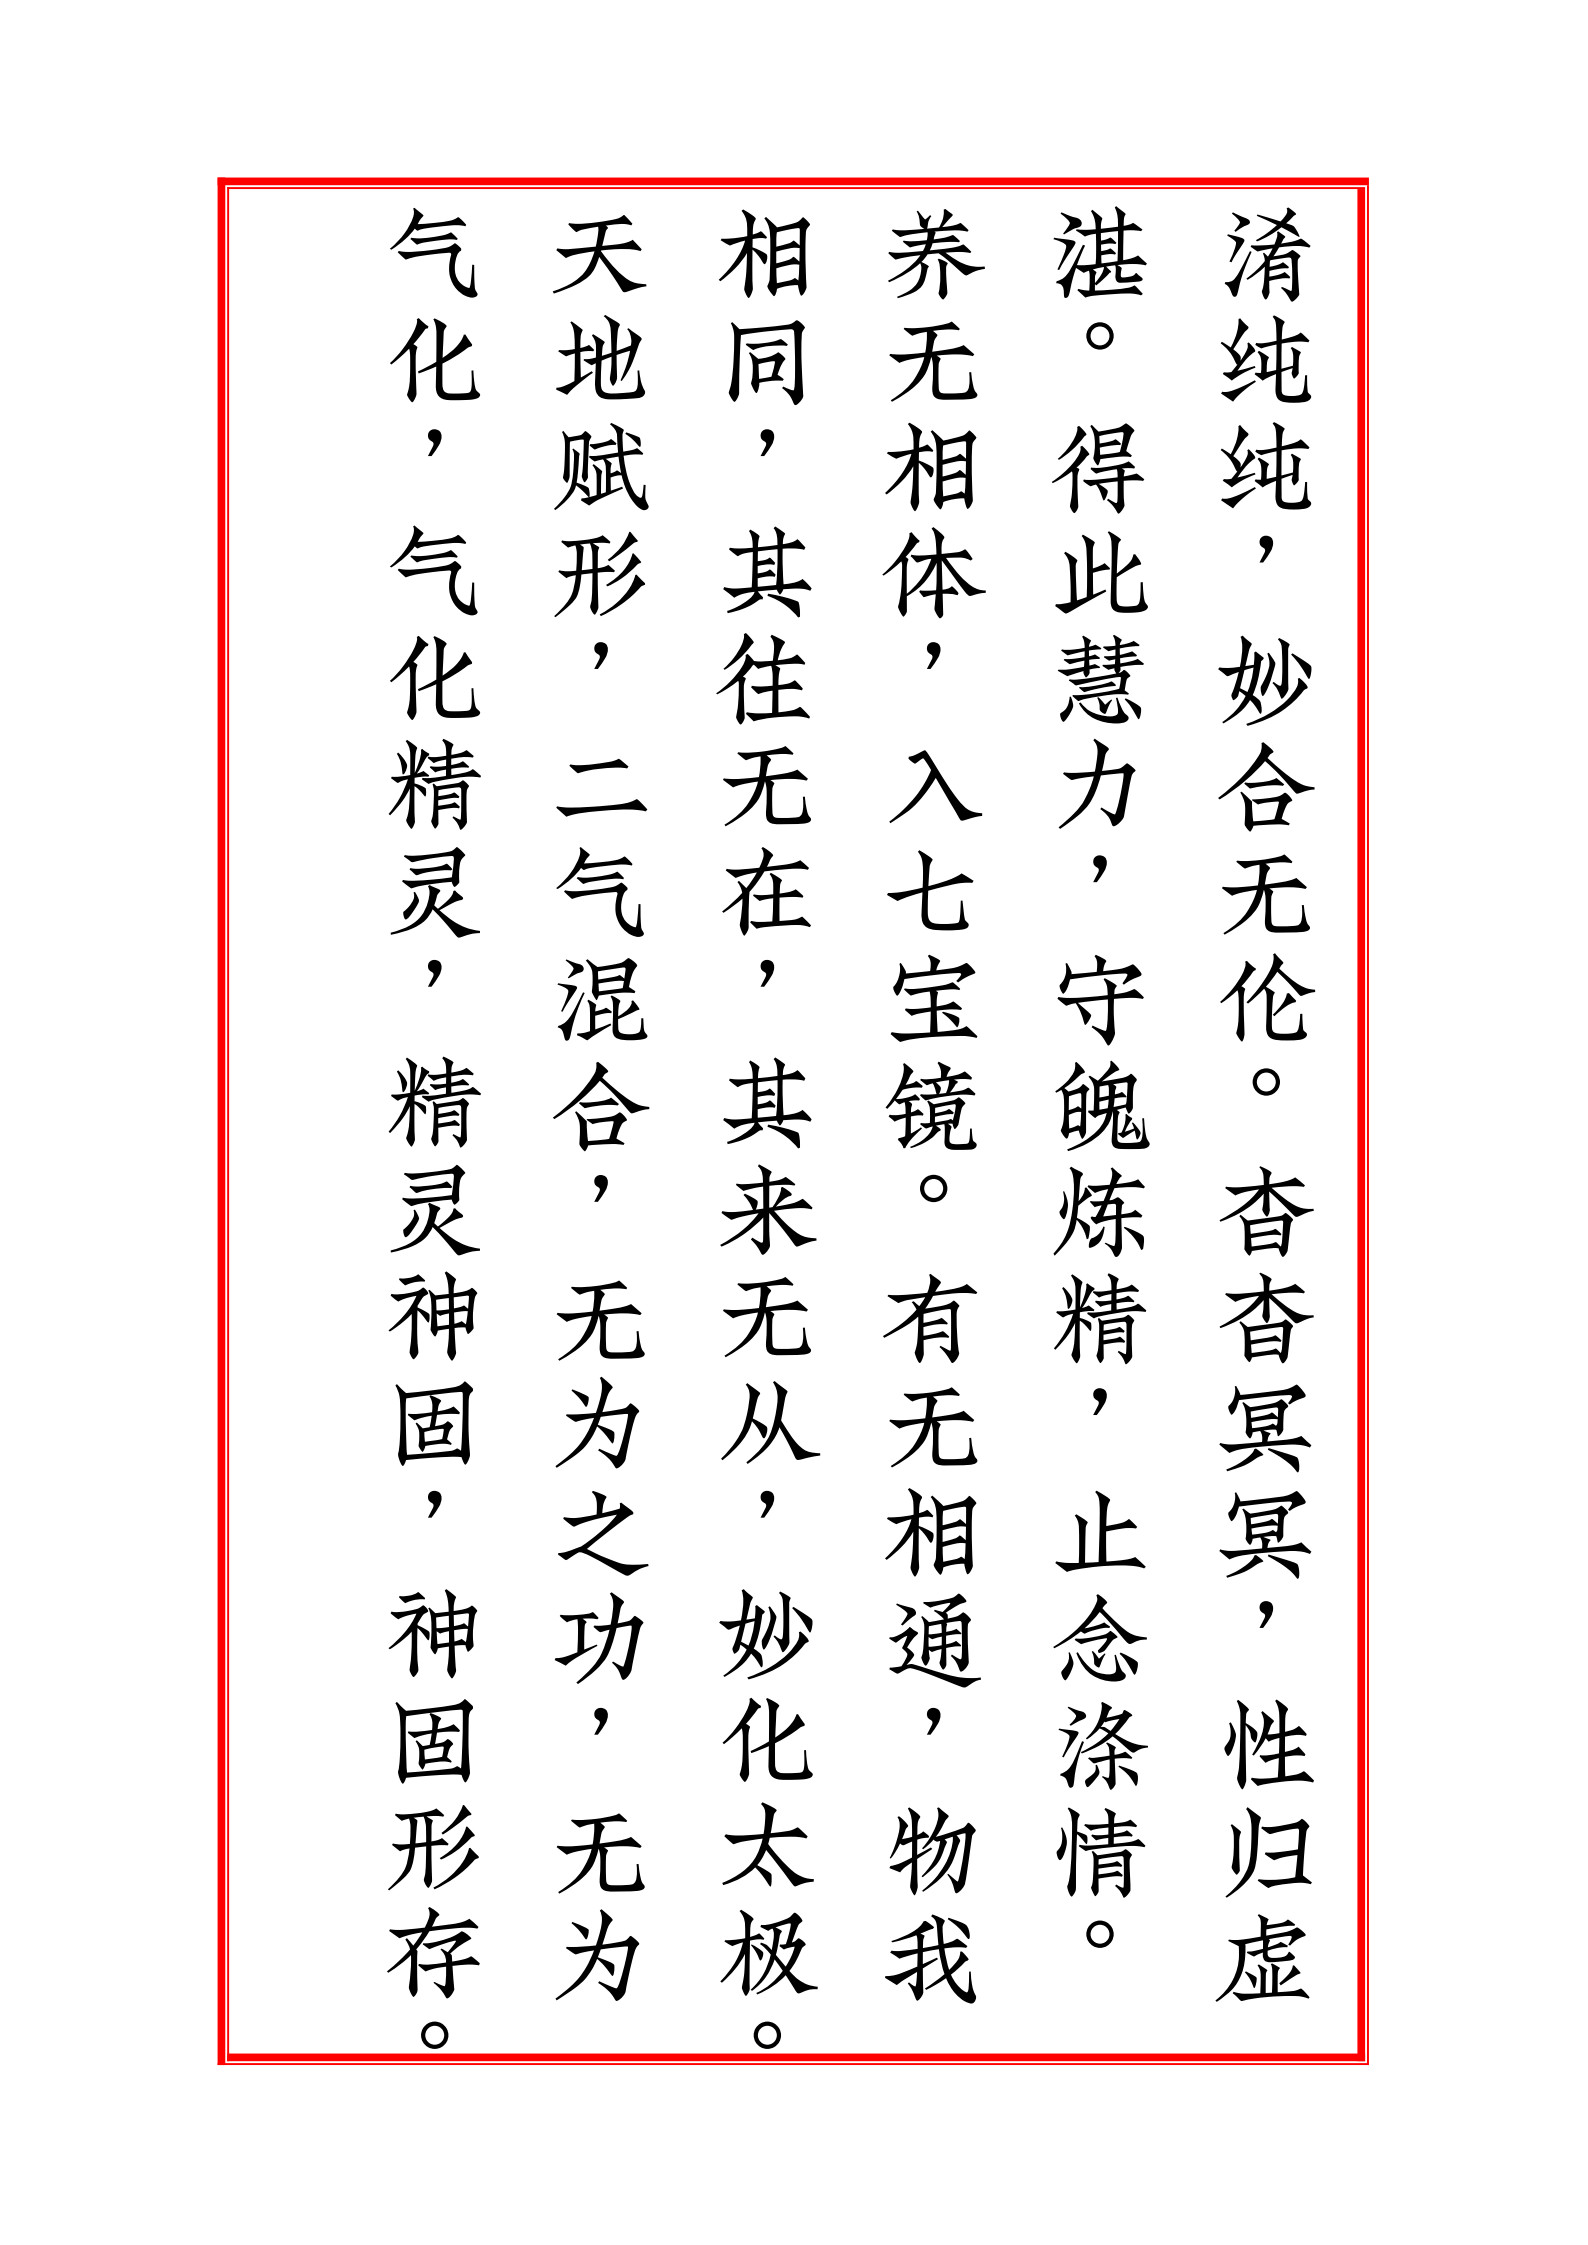 淆纯纯，妙合无伦。杳杳冥冥，性归虚
湛。得此慧力，守魄炼精，止念涤情。
养无相体，入七宝镜。有无相通，物我
相同，其往无在，其来无从，妙化太极。
天地赋形，二气混合，无为之功，无为
气化，气化精灵，精灵神固，神固形存。